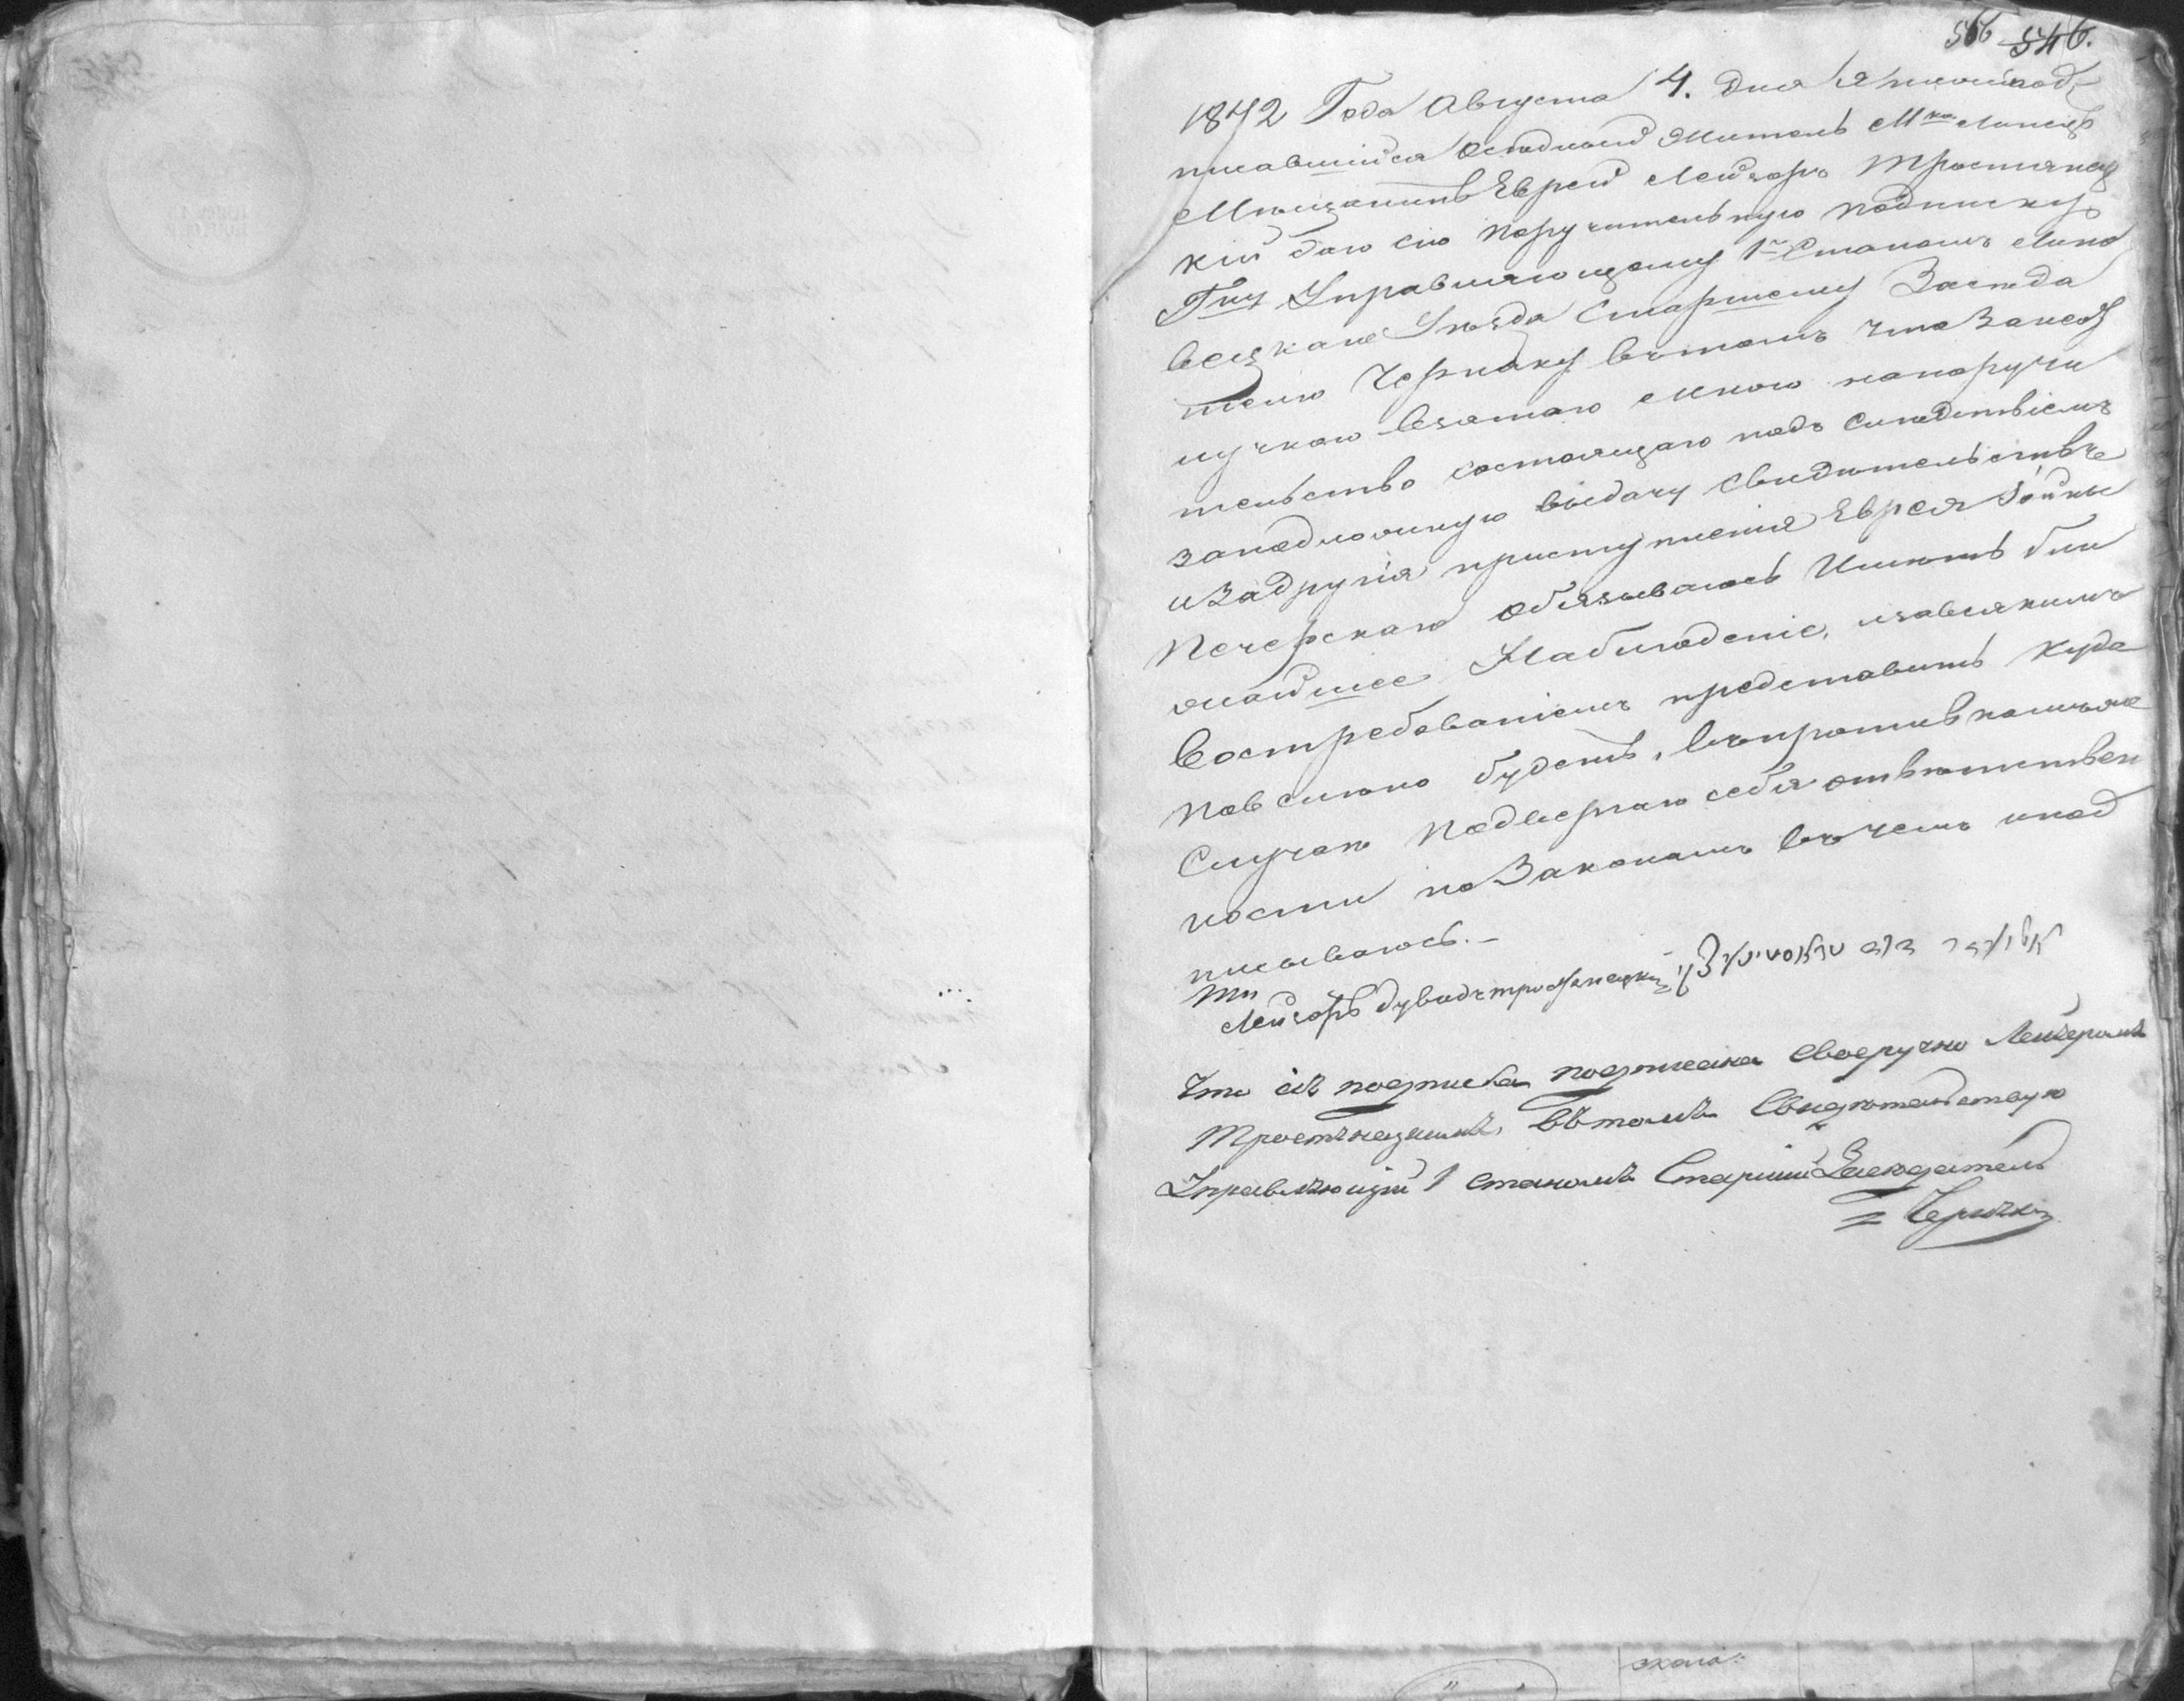 566 546.
1842 Года Августа 4. Дня я нижепод
писавшийся оседлый житель Мка Липовца
Мещанинъ Еврей Лейзоръ Тростянец
кій даю сію поручительную подписку
Гну Управляющему 1м Станомъ Липо
вецкаго Уезда Старшему Заседа
телю Черняку вътомъ что Заисо
лучнаго взятаго мною напоручи
тельство состоящаго подъ Следствіемъ
заподложную выдачу свидетельствъ
иЗадругія приступленія Еврея Іойны
Печерскаго обязываюсь Иметь бли
жайшее Наблюденіе, изавсякимъ
Востребованіемъ представить куда
Повелено будетъ, Въпротивномъже
Случае Подвергаю себя ответствен
ности поЗаконамъ въчемъ ипод
писываюсь. —
Лейзоръ дувидъ тростянецкий
Что сія подписка подписана своеручно Лейзеромъ
Тростянецкимъ, вътомъ Свидетельствую
Управляющій 1 Станомъ Старшій Заседатель
Чернякъ